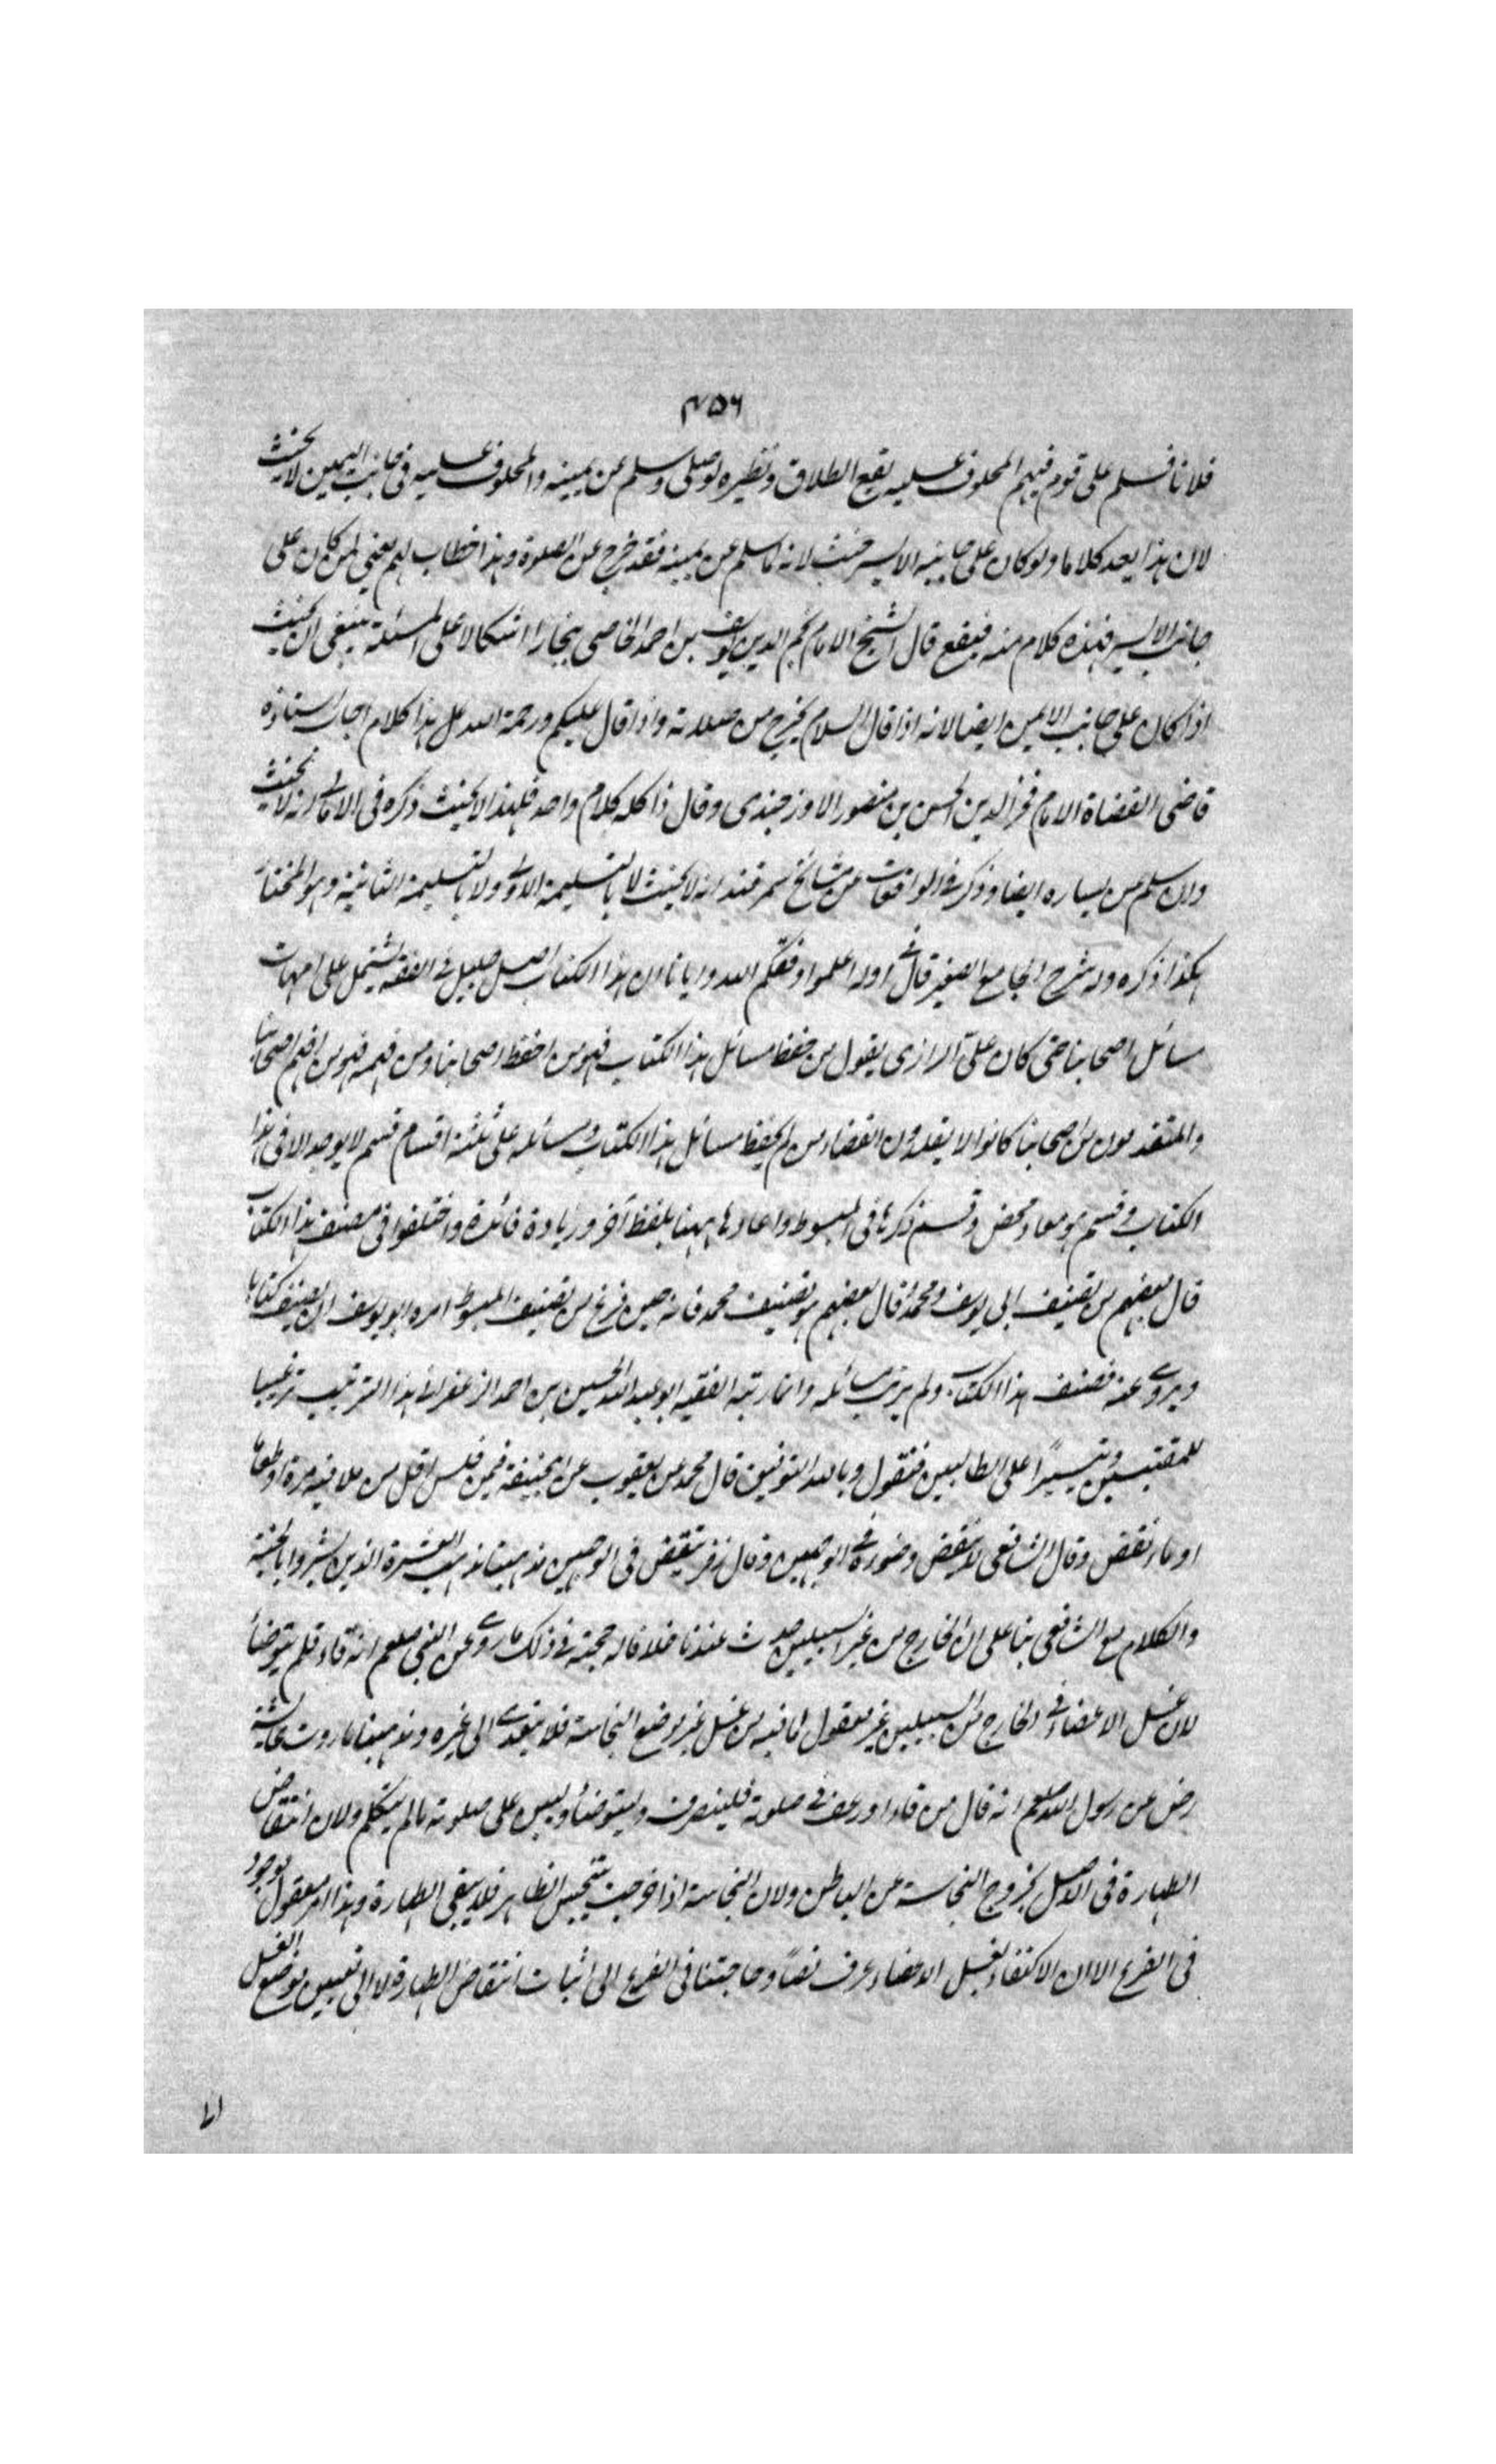 ٤٥٦
فلانا فسلم على قوم فيهم المحلوف عليه يقع الطلاق ونظيره لو صلى وسلم عن يمينه والمحلوف عليه فى جانب اليمين لا يحنث
لان هذا يعد كلاما ولو كان على جانبه الايسر حنث لانه لما سلم عن يمينه فقد خرج عن الصلوة وهذا خطاب لهم يعنى لمن كان على
جانب الايسر فهذه كلام منه فيقع قال الشيخ الامام نجم الدين يوسف بن احمد الخاصى ببخارا اشكالا على المسئلة ينبغى ان يحنث
اذا كان على جانب الايمن ايضا لانه اذا قال السلام يخرج من صلاته واذا قال عليكم ورحمة الله عل هذا كلام اجاب استاذه
قاضى القضاة الامام فخر الدين الحسن بن منصور الاوزجندى وقال ذا كله كلام واحد فلهذا لا يحنث ذكره فى الامالى انه لا يحنث
وان سلم عن يساره ايضا وذكر فى الواقعات عن مشائخ سمرقند انه لا يحنث لا بالتسليمة الاولى ولا بالتسليمة الثانية وهو المختار
هكذا ذكره وله شرح الجامع الصغير قال فى اوله اعلموا وفقكم الله وايانا ان هذا الكتاب اصل جليل فى الفقه يشتمل على امهات
مسائل اصحابنا حتى كان على الرازى يقول من حفظ مسائل هذا الكتاب فهو من احفظ اصحابنا ومن فهمه فهو من افهم اصحابنا
والمتقدمون من اصحابنا كانوا لا يقلدون القضاء من لم يحفظ مسائل هذا الكتاب ومسائله على ثلثة اقسام قسم لا يوجد الا فى هذا
الكتاب وقسم هو معاد محض وقسم ذكرها فى المبسوط واعادها ههنا بلفظ آخر وزيادة فائدة واختلفوا فى مصنف هذا الكتاب
قال بعضهم من تصنيف ابى يوسف ومحمد وقال بعضهم هو تصنيف محمد فانه حين فرغ من تصنيف المبسوط امره ابو يوسف ان يصنف كتابا
ويروى عنه فصنف هذا الكتاب ولم يرتب مسائله وانما رتبه الفقيه ابو عبد الله الحسين بن احمد الزعفرانى هذا الترتيب ترغيبا
للمقتبسين وتيسيرًا على الطالبين فنقول وبالله التوفيق قال محمد عن يعقوب عن ابى حنيفة فيمن قلس اقل من ملا فيه مرة او طعاما
او ماء نقض وقال الشافعى لا ينقض وضوءه فى الوجهين وقال زفر ينقض فى الوجهين مذهبنا مذهب العشرة الذين بشروا بالجنة
والكلام مع الشافعى بناء على ان الخارج من غير السبيلين حدث عندنا خلافا له حجته فى ذلك ما روى عن النبى صلعم انه قاء فلم يتوضأ
لان غسل الاعضاء فى الخارج من السبيلين غير معقول لما فيه من غسل غير موضع النجاسة فلا يتعدى الى غيره ومذهبنا ما روت عايشة
رض عن رسول الله صلعم انه قال من قاء او رعف فى صلوته فلينصرف وليتوضأ وليبن على صلوته ما لم يتكلم ولان انتقاض
الطهارة فى الاصل بخروج النجاسة عن الباطن ولان النجاسة اذا خرجت يتنجس الظاهر فلا يبقى الطهارة وهذا الامر معقول موجود
فى الفرع الا ان الاكتفاء بغسل الاعضاء عرف نصًا وحاجتنا فى الفرع الى اثبات انتقاض الطهارة لا الى تعيين موضع الغسل